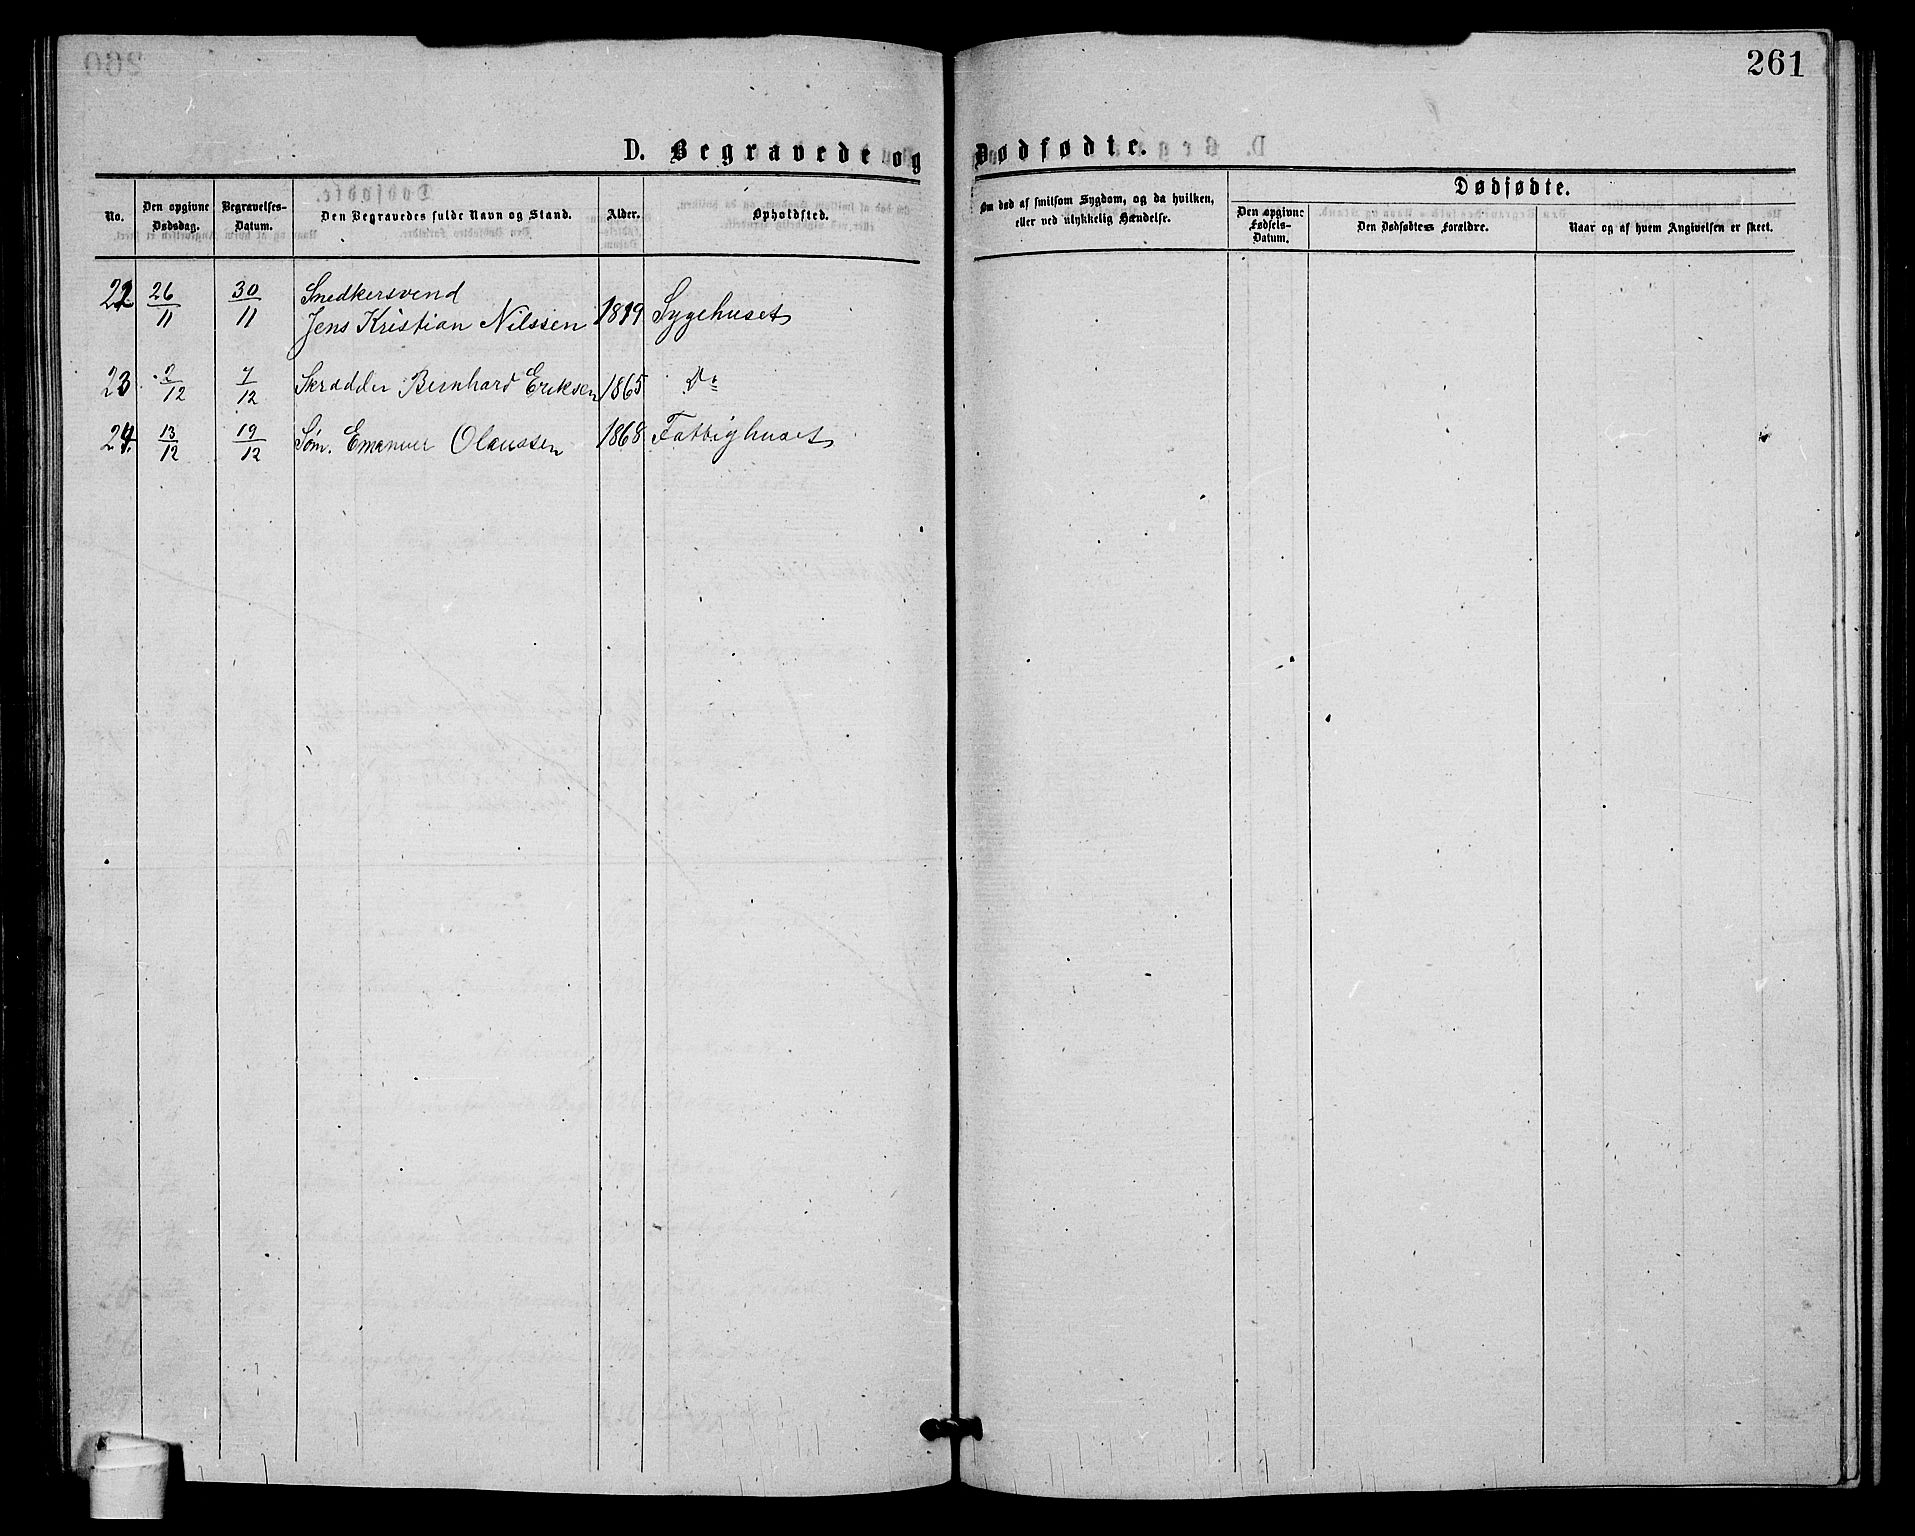 261
D. Begravede og Dødfødte.
No. Den opgivne Dødsdag. Begravelses-Datum. Den Begravedes fulde Navn og Stand. Alder. Opholdsted. Om død af smitsom Sygdom, og da hvilken, eller ved ulykkelig Hændelse. Dødfødte.
Den opgivne Fødsels-Datum. Den Dødfødtes Forældre. Naar og af hvem Angivelsen er skeet.
22 26/11 30/11 Snedkersvend
Jens Kristian Nilssen 1819 Sygehuset
23 2/12 7/12 Skrædder Bernhard Eriksen 1865 Do
24. 13/12 19/12 Søm. Emanuel Olaussen 1868 Fattighuset